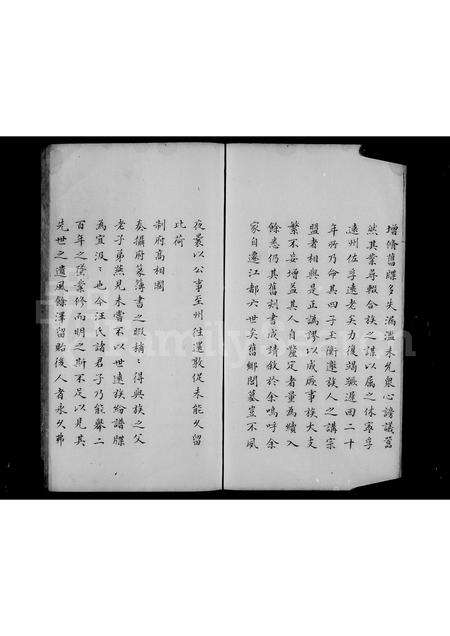 增脩舊牒多失漏濫未允衆心諮議舊
然其業尋輟合族之謀以屬之休寧孚
遠州佐孚遠老矣力復竭蹶遲回二十
年所乃命其四子玉衡邀族人之講宗
盟者相與是正譌謬以成厥事族大支
繁不妄增益其人自釐定者量為續入
餘悉仍其舊剞書成請敘於余嗚呼余
家自遷江都六世矣舊鄉閭墓堂不風
夜晨以公事至州往還敦促未能久留
比荷
制府高相國
奏攝府篆簿書之暇稍稍得與族之父
老子弟燕見未嘗不以世遠族紛譜牒
為宜汲汲也今汪氏諸君子乃能舉二
百年之墜業修而明之斯不足以見其
先世之遺風餘澤留貽後人者永久弗